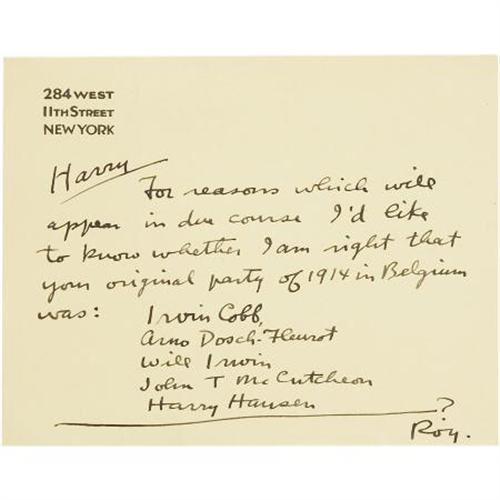 284 WEST
11TH STREET
NEW YORK
Harry
For reasons which will
appear in due course I'd like
to know whether I am right that
your original party of 1914 in Belgium
was: Irvin Cobb,
Arno Dosch-Fleurot
Will Irwin
John T McCutcheon
Harry Hansen
?
Roy.